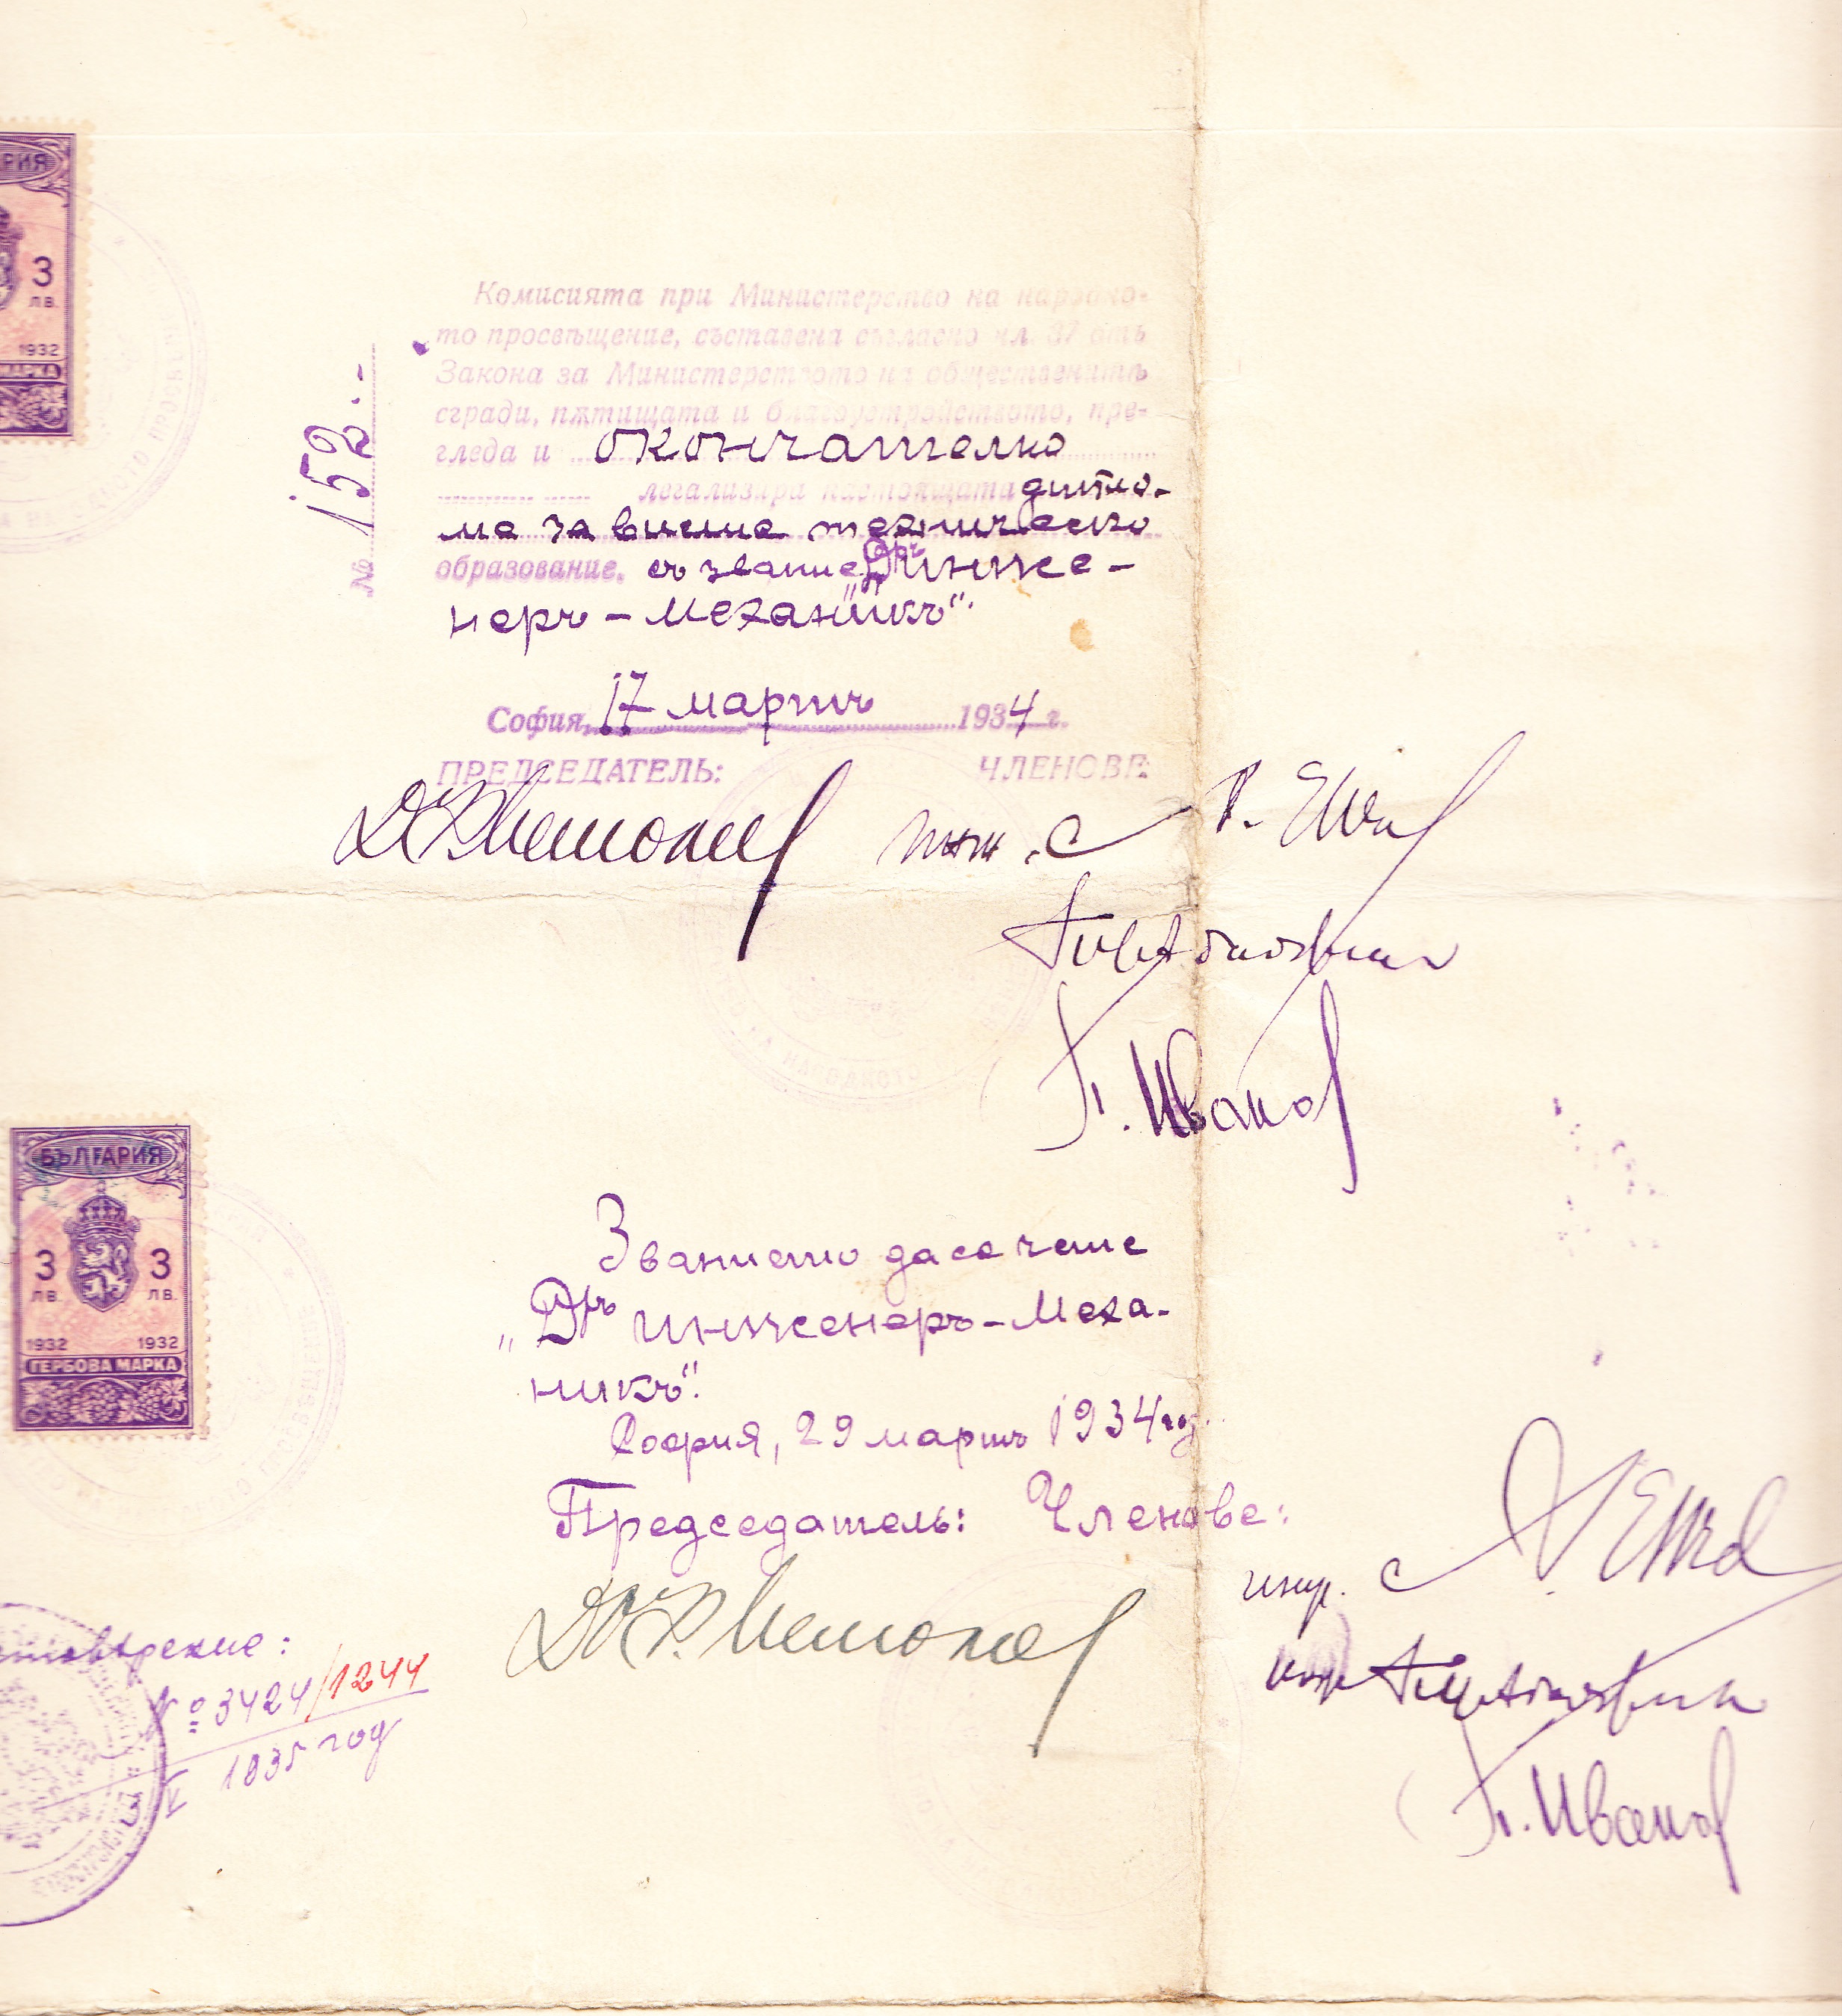 РИЯ
3
лв.
1932
МАРКА
№ 152
Комисията при Министерство на народно-
то просвѣщение, съставена съгласно чл. 37 отъ
Закона за Министерството на общественитѣ
сгради, пѫтищата и благоустройството, пре-
гледа и окончателно
легализира настоящата дипло-
ма за висше техническо
образование, съ звание „Дръ инже-
неръ – механикъ“.
София, 17 мартъ 1934 г.
ПРЕДСЕДАТЕЛЬ: ЧЛЕНОВЕ:
инж. С
П. Иванов
БЪЛГАРИЯ
3 3
лв. лв.
1932 1932
ГЕРБОВА МАРКА
Званието да се чете
„Дръ инженеръ – Меха-
никъ“.
София, 29 мартъ 1934 год.
Председатель: Членове:
инж. С
инж
П. Иванов
№ 3424/1244
1935 год